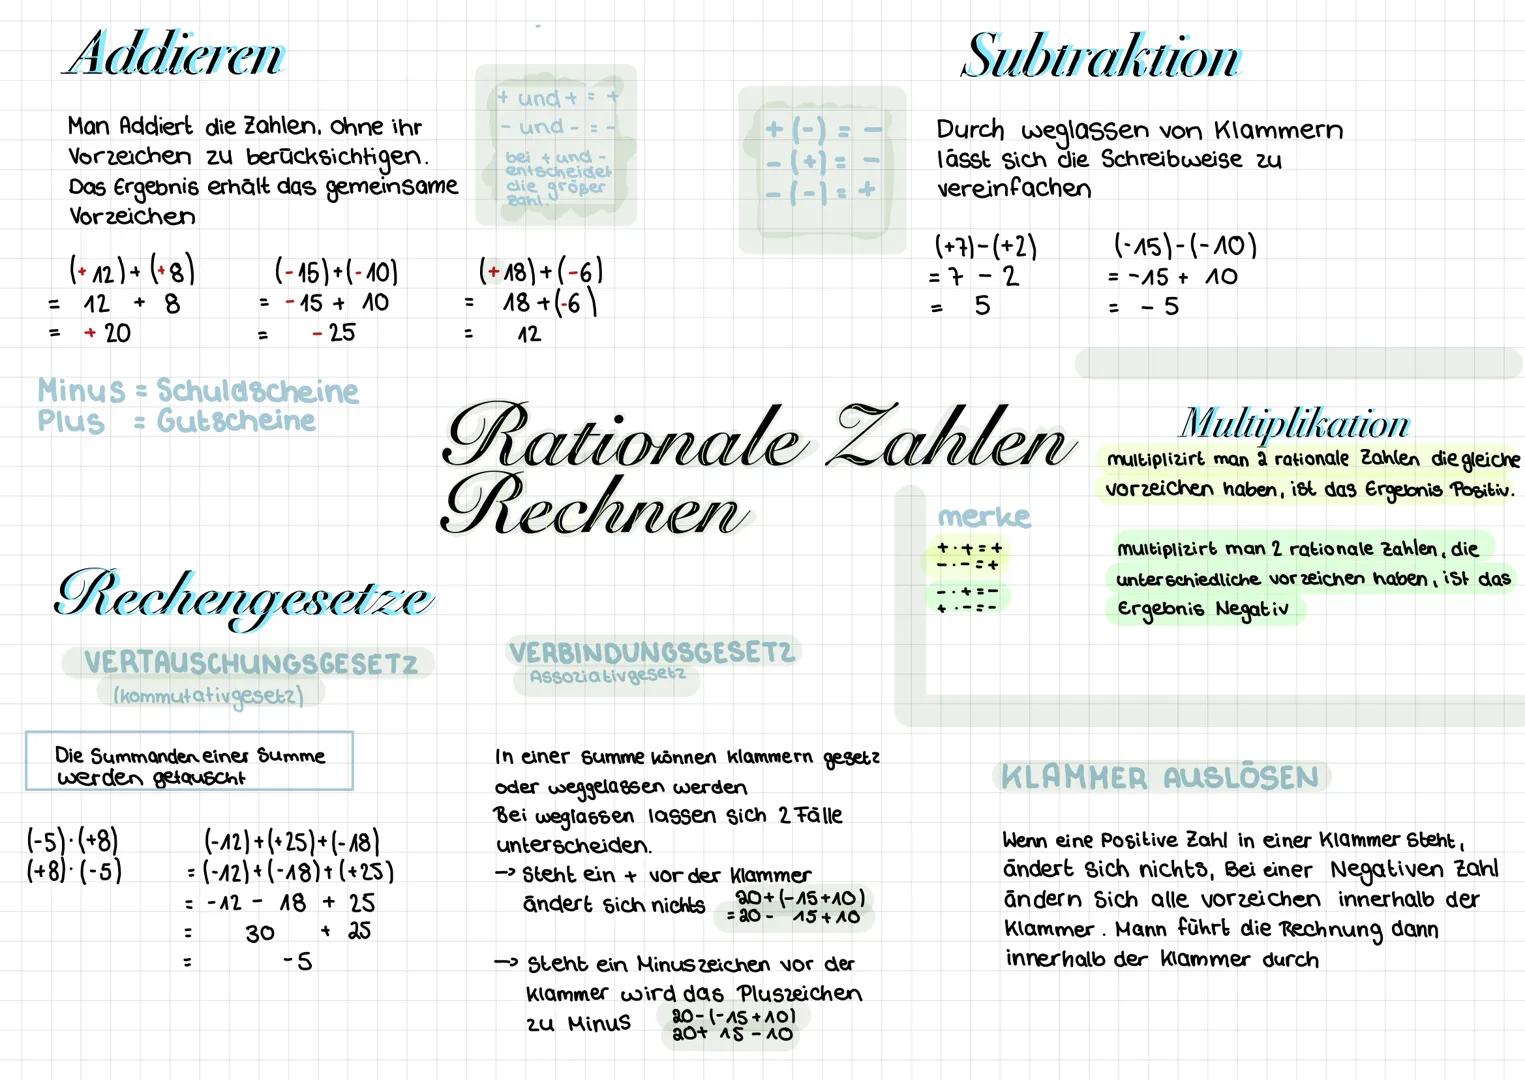 Addieren
Man Addiert die Zahlen, ohne ihr
Vorzeichen zu berücksichtigen.
Das Ergebnis erhält das gemeinsame
Vorzeichen
+ und + = +
- und - = -
bei + und -
entscheidet
die größer
Zahl.
(+12)+(+8)
= 12 + 8
= +20
(-15)+(-10)
= -15 + 10
= -25
(+18)+(-6)
= 18+(-6)
= 12
Minus = Schuldscheine
Plus = Gutscheine
+(-) = -
-(+) = -
-(-) = +
Subtraktion
Durch weglassen von Klammern
lässt sich die Schreibweise zu
vereinfachen
(+7)-(+2)
= 7 - 2
= 5
(-15)-(-10)
= -15 + 10
= -5
Rationale Zahlen
Rechnen
Multiplikation
multiplizirt man 2 rationale Zahlen die gleiche
vorzeichen haben, ist das Ergebnis Positiv.
multiplizirt man 2 rationale Zahlen, die
unterschiedliche vorzeichen haben, ist das
Ergebnis Negativ
merke
+·+=+
-·-=+
-·+=-
+·-=-
Rechengesetze
VERTAUSCHUNGSGESETZ
(kommutativgesetz)
Die Summanden einer Summe
werden getauscht
(-5)·(+8)
(+8)·(-5)
(-12)+(+25)+(-18)
=(-12)+(-18)+(+25)
= -12 - 18 + 25
= 30 + 25
= -5
VERBINDUNGSGESETZ
Assoziativgesetz
In einer Summe können klammern gesetz
oder weggelassen werden
Bei weglassen lassen sich 2 Fälle
unterscheiden.
-> Steht ein + vor der Klammer
ändert sich nichts
20+(-15+10)
=20- 15+10
-> Steht ein Minuszeichen vor der
klammer wird das Pluszeichen
zu Minus
20-(-15+10)
20+ 15-10
KLAMMER AUSLÖSEN
Wenn eine Positive Zahl in einer Klammer steht,
ändert sich nichts, Bei einer Negativen Zahl
ändern sich alle vorzeichen innerhalb der
Klammer. Mann führt die Rechnung dann
innerhalb der Klammer durch